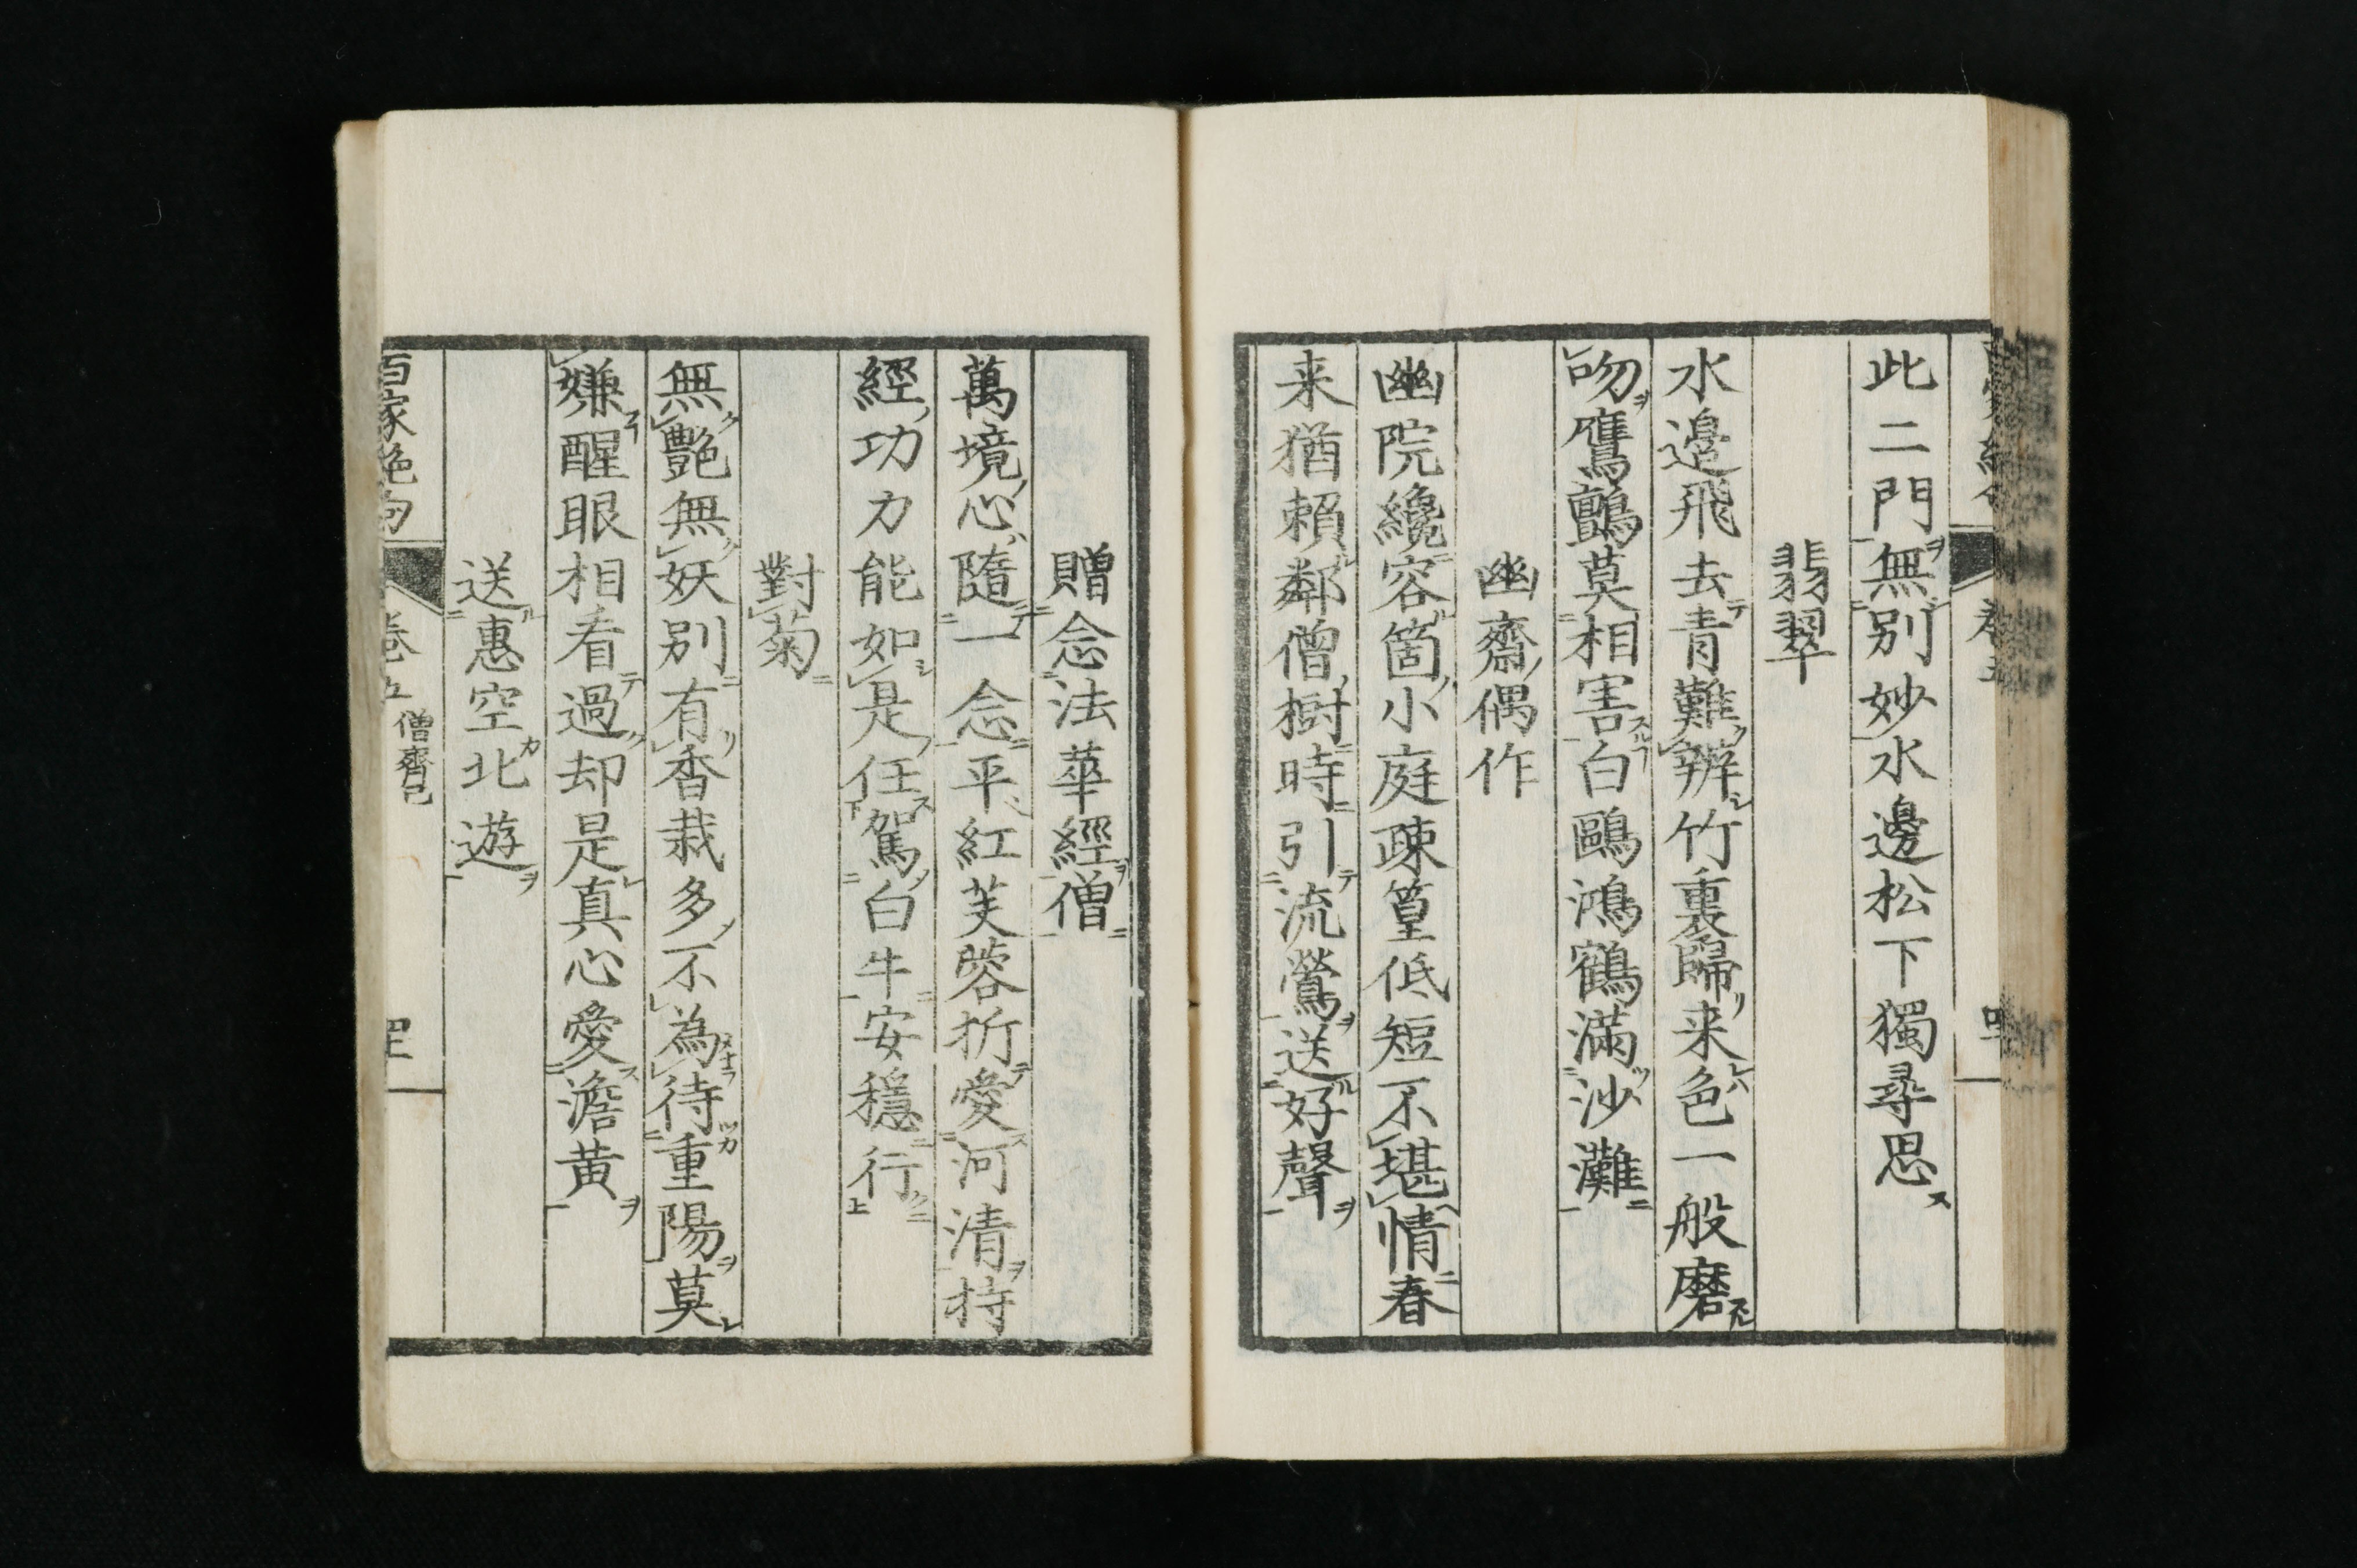 此二門無別妙水邊松下獨尋思
翡翠
水邉飛去青難辨竹裏歸来色一般磨
吻鷹鸇莫相害白鷗鴻鶴滿沙灘
幽齋偶作
幽院纔容箇小庭疎篁低短不堪情春
来猶賴鄰僧樹時引流鶯送好聲
贈念法華經僧
萬境心隨一念平紅芙蓉折愛河清持
經功力能如是任駕白牛安穩行
對菊
無艶無妖別有香栽多不為待重陽莫
嫌醒眼相看過却是真心愛澹黄
送惠空北遊
百家絶句
卷五
僧齊己